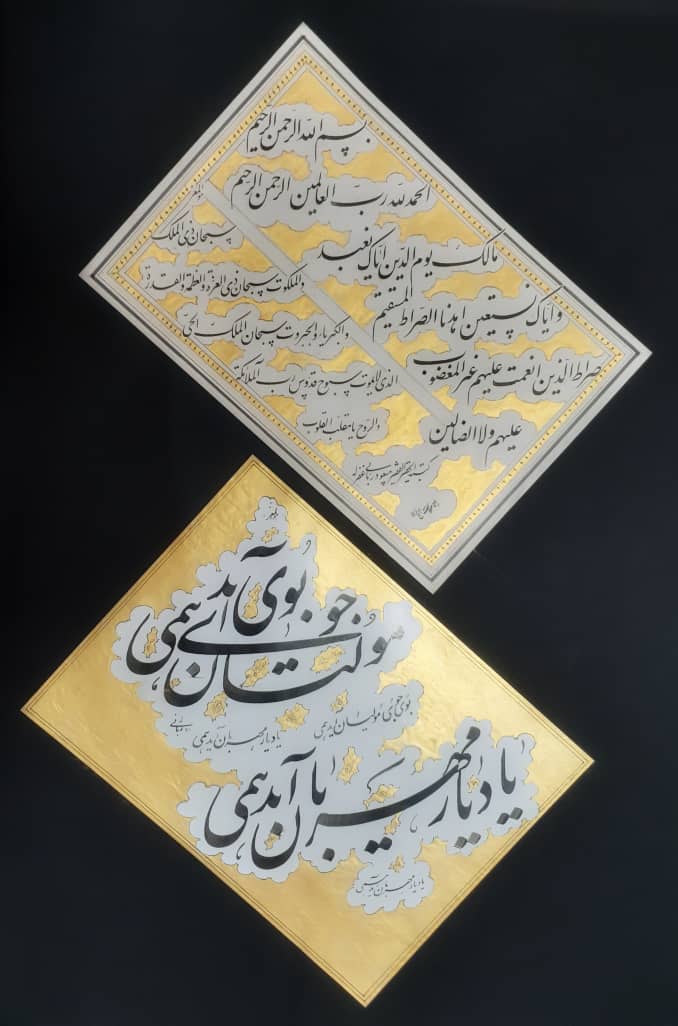 بسم الله الرحمن الرحیم
الحمد لله رب العالمین الرحمن الرحیم
مالک یوم الدین ایاک نعبد
و ایاک نستعین اهدنا الصراط المستقیم
صراط الذین انعمت علیهم غیر المغضوب
علیهم ولا الضالین
هوالمعز
سبحان ذی الملک
والملکوت سبحان ذی العزة والعظمة والقدرة
والکبریاء والجبروت سبحان الملک الحی
الذی لایموت سبوح قدوس رب الملائکة
والروح یا مقلب القلوب
کتبه الفقیر الحقیر
غفرله
بوی جوی مولیان آید همی
بوی جوی مولیان آید همی
یاد یار مهربان آید همی
یاد یار مهربان آید همی
یاد یار مهربان آید همی